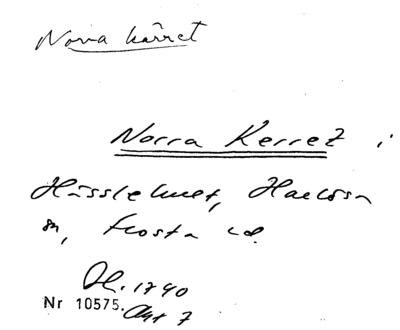 Norra kärret
Norra Kerret i
Hässlehult, Harlösa
sn, Frosta hd.
Dl. 1740
Nr 10575. Akt 7